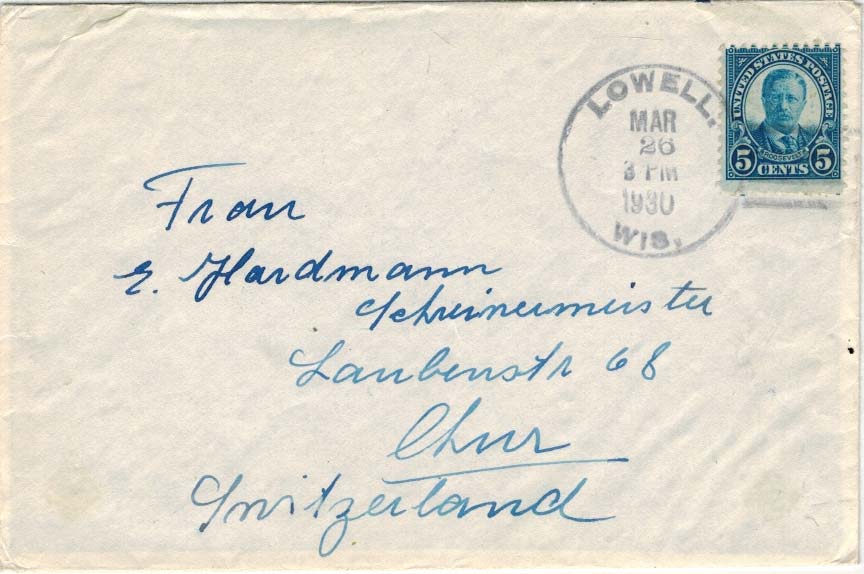 LOWELL,
MAR
26
3 PM
1930
WIS.
UNITED STATES POSTAGE
ROOSEVELT
5 CENTS 5
Frau
E. Hardmann
Schreinermeister
Laubenstr 68
Chur
Switzerland